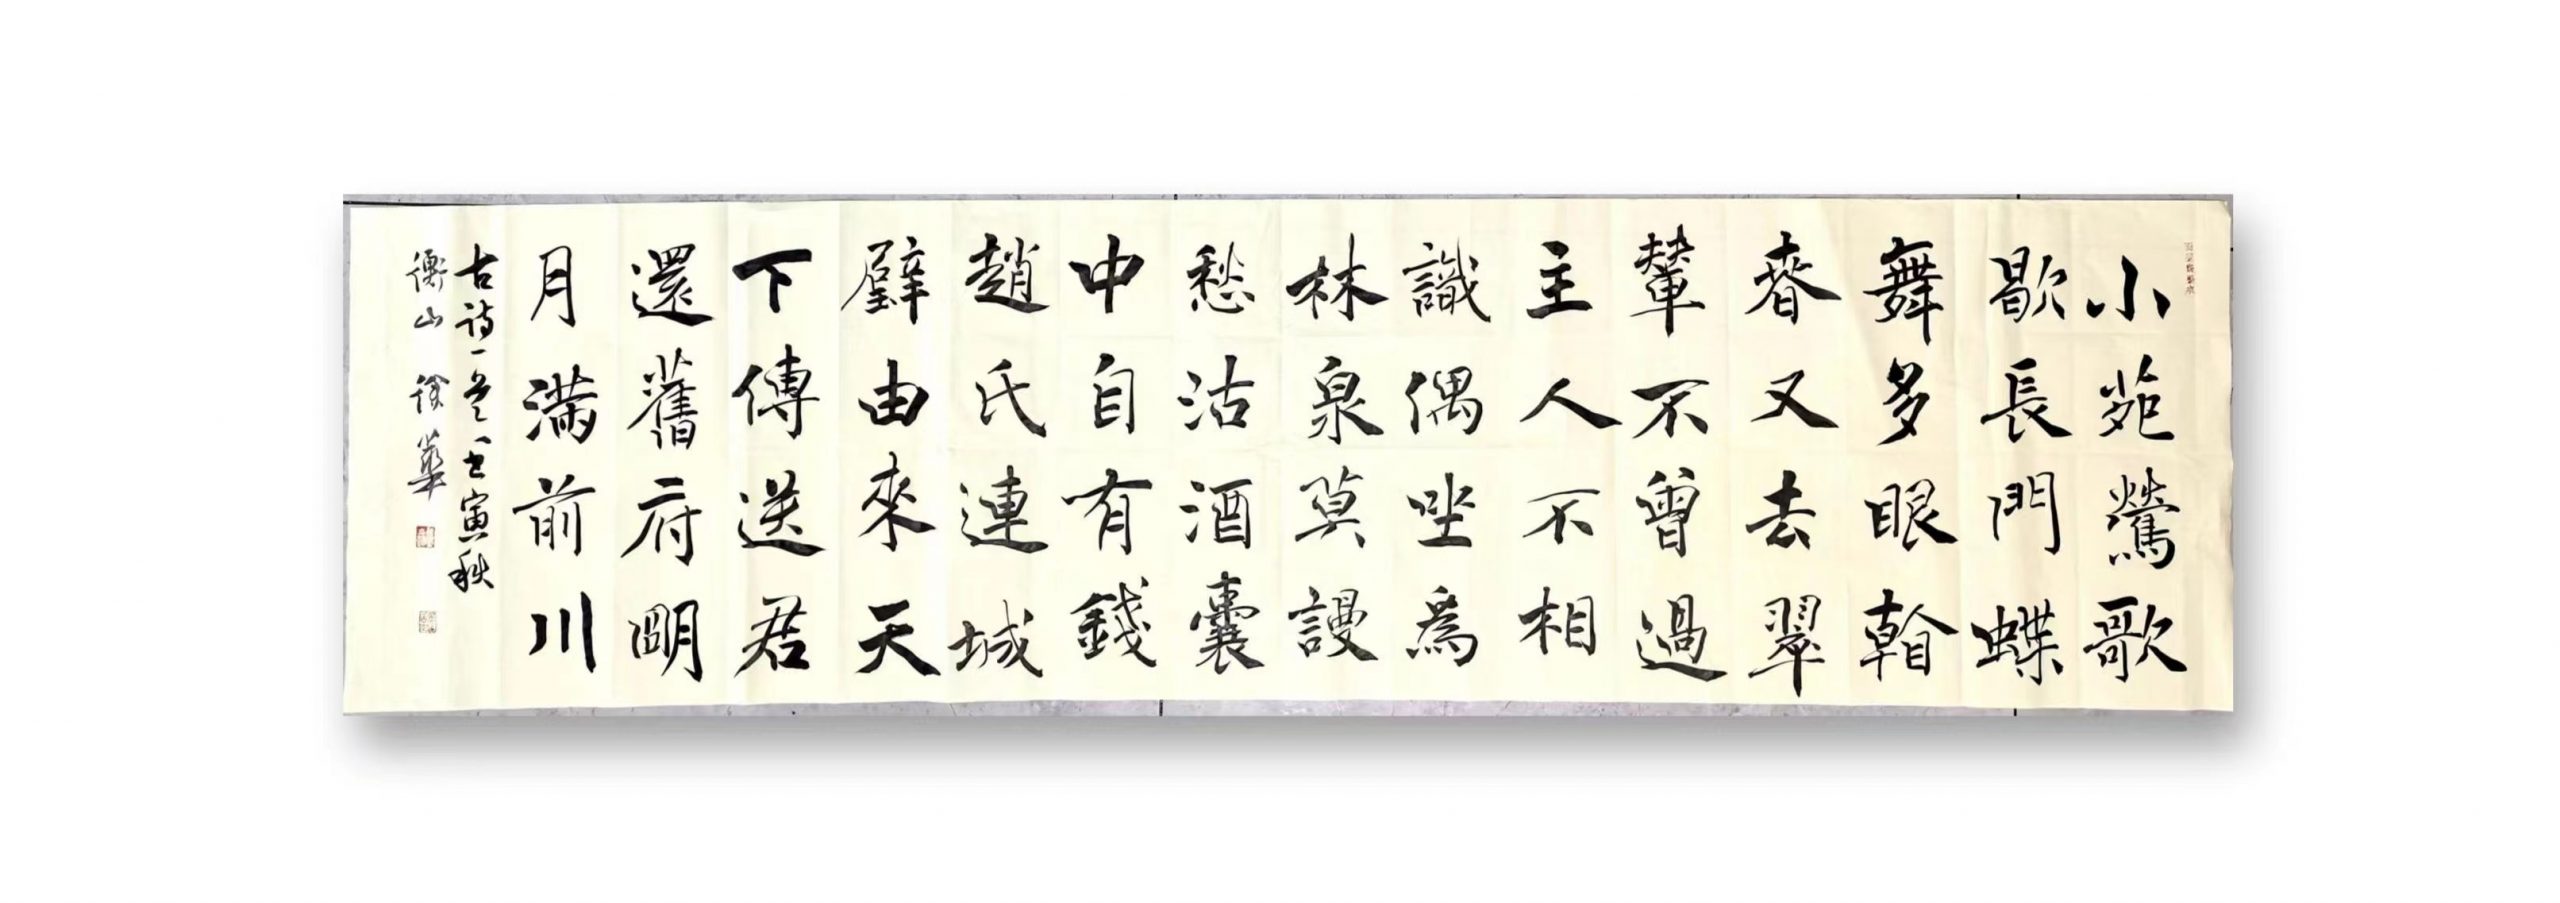 小苑鶯歌
歇長門蝶
舞多眼看
春又去翠
輦不曾過
主人不相
識偶坐爲
林泉莫謾
愁沽酒囊
中自有錢
趙氏連城
璧由來天
下傳送君
還舊府明
月滿前川
古詩一首壬寅秋
衡山徐華